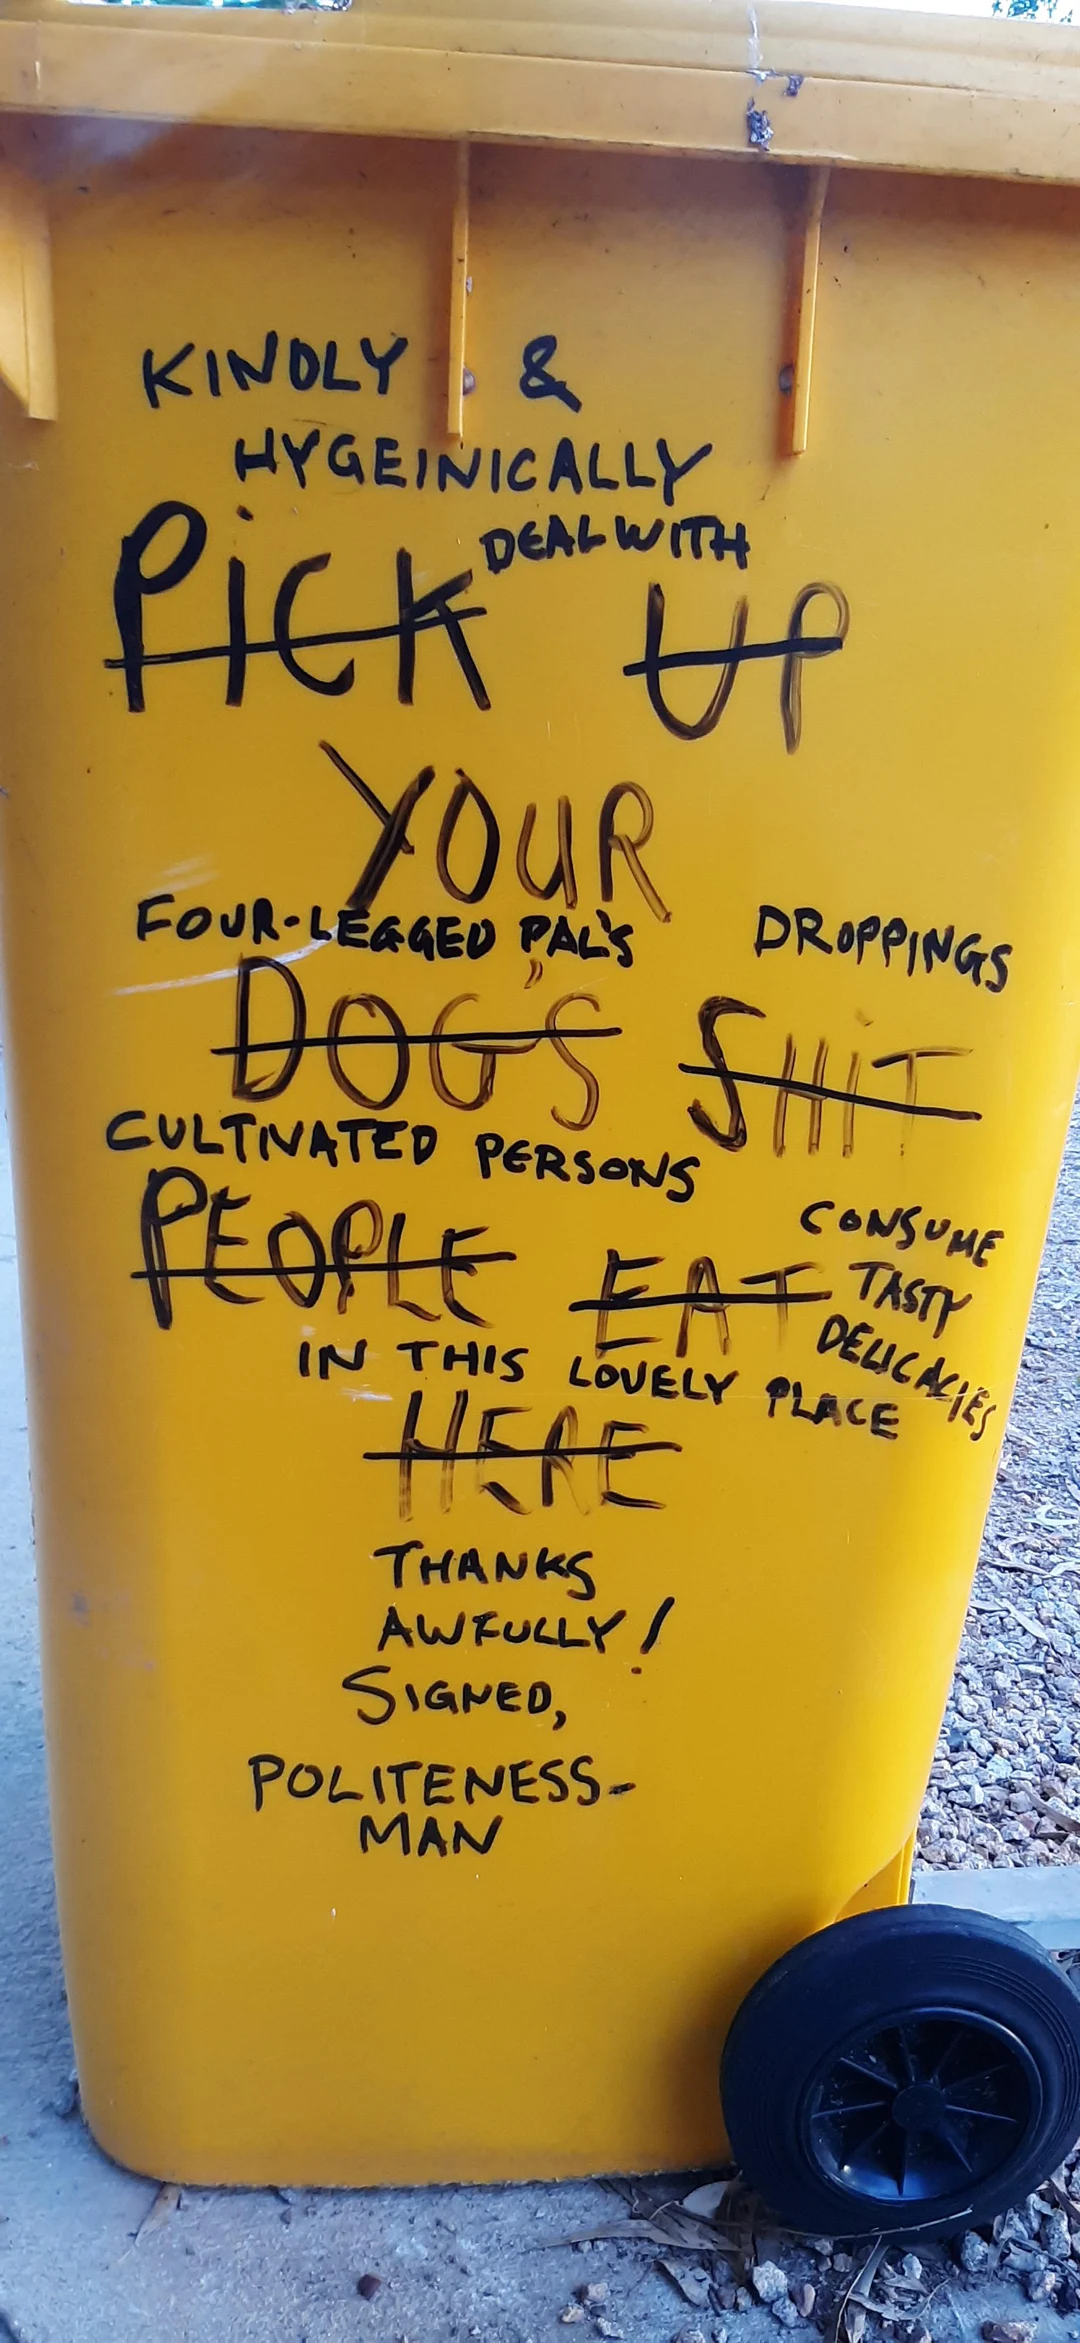 KINDLY &
HYGEINICALLY
DEAL WITH
PiCK UP
YOUR
FOUR-LEGGED PAL'S DROPPINGS
DOG'S SHiT
CULTIVATED PERSONS
CONSUME
PEOPLE EAT TASTY
DELICACIES
IN THIS LOVELY PLACE
HERE
THANKS
AWFULLY!
SIGNED,
POLITENESS-
MAN